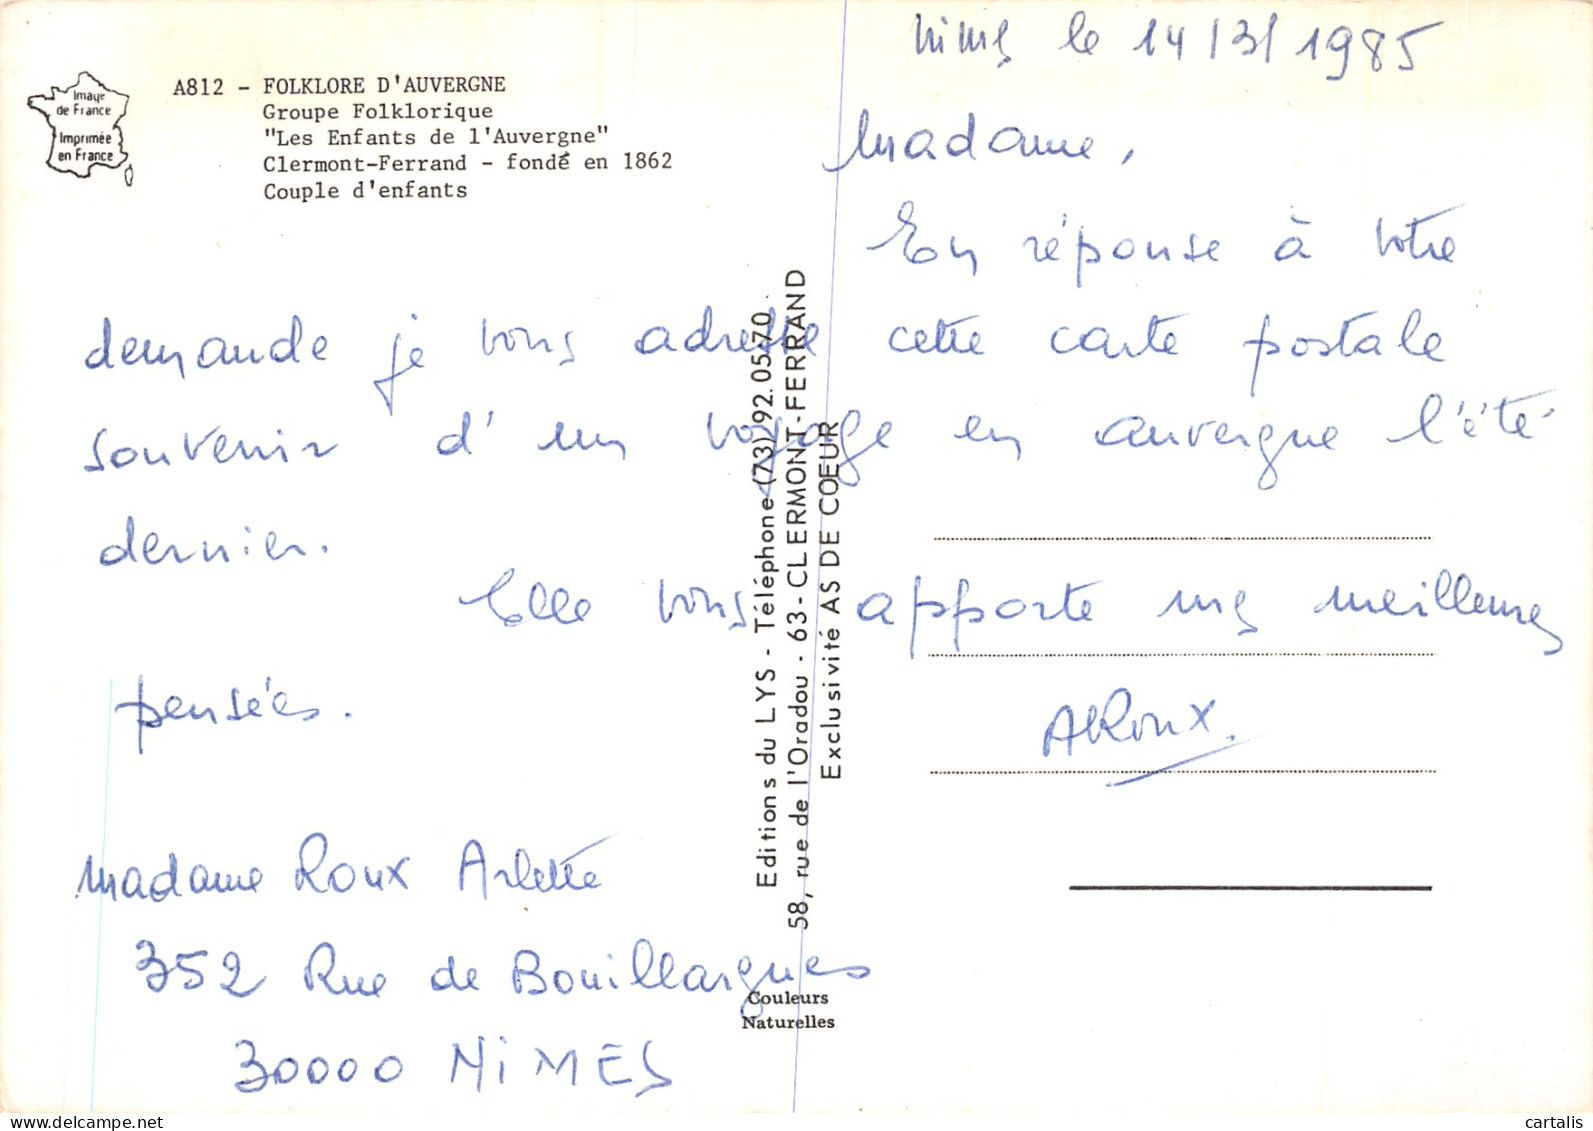 Image
de France
Imprimée
en France
A812 - FOLKLORE D'AUVERGNE
Groupe Folklorique
"Les Enfants de l'Auvergne"
Clermont-Ferrand - fondé en 1862
Couple d'enfants
Nimes le 14/3/1985
Madame,
En réponse à votre
demande je vous adresse cette carte postale
souvenir d'un voyage en auvergne l'été
dernier.
Elle vous apporte mes meilleures
pensées.
ARoux.
Madame Roux Arlette
352 Rue de Bouillargues
30000 NiMES
Editions du LYS - Téléphone (73) 92.05.70
58, rue de l'Oradou - 63 - CLERMONT-FERRAND
Exclusivité AS DE COEUR
Couleurs
Naturelles
www.delcampe.net
cartalis